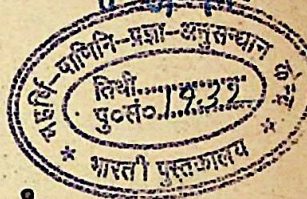 महर्षि-पाणिनि-प्रज्ञा-अनुसन्धान
तिथी..................
पु०सं० 1932
* भारती पुस्तकालय *